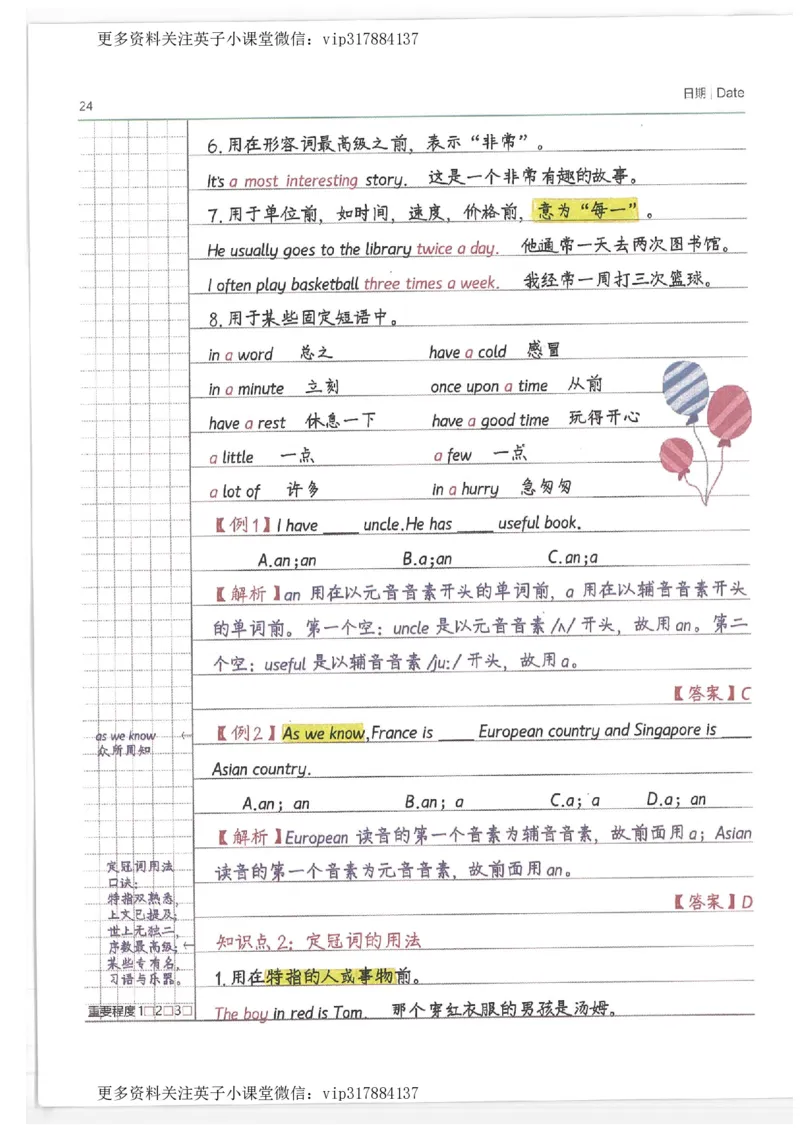 更多资料关注英子小课堂微信：vip317884137
日期 | Date
24
6.用在形容词最高级之前，表示“非常”。
It's a most interesting story. 这是一个非常有趣的故事。
7.用于单位前，如时间，速度，价格前，意为“每一”。
He usually goes to the library twice a day. 他通常一天去两次图书馆。
I often play basketball three times a week. 我经常一周打三次篮球。
8.用于某些固定短语中。
in a word 总之 have a cold 感冒
in a minute 立刻 once upon a time 从前
have a rest 休息一下 have a good time 玩得开心
a little 一点 a few 一点
a lot of 许多 in a hurry 急匆匆
【例1】I have ____ uncle.He has ____ useful book.
A.an;an B.a;an C.an;a
【解析】an 用在以元音音素开头的单词前，a 用在以辅音音素开头
的单词前。第一个空：uncle 是以元音音素/ʌ/开头，故用an。第二
个空：useful 是以辅音音素/juː/开头，故用a。
【答案】C
as we know
众所周知
【例2】As we know,France is ____ European country and Singapore is ____
Asian country.
A.an；an B.an；a C.a；a D.a；an
【解析】European 读音的第一个音素为辅音音素，故前面用a；Asian
读音的第一个音素为元音音素，故前面用an。
【答案】D
定冠词用法
口诀：
特指双熟悉，
上文已提及；
世上无独二，
序数最高级；
某些专有名，
习语与乐器。
知识点2：定冠词的用法
1.用在特指的人或事物前。
The boy in red is Tom. 那个穿红衣服的男孩是汤姆。
重要程度 1□2□3□
更多资料关注英子小课堂微信：vip317884137